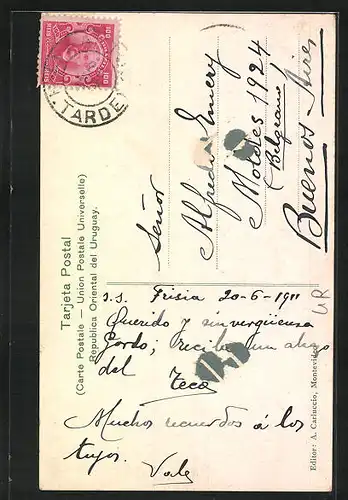 TARDE
100 REIS 100
Tarjeta Postal
(Carte Postale — Union Postale Universelle)
Republica Oriental del Uruguay.
Señor
Alfredo Emery
Moldes 1924
(Belgrano)
Buenos Aires
s.s. Frisia 20-6-1911
Querido y sinvergüensa
Gordo; recibe un abrazo
del
Teca
Muchos recuerdos á los
tuyos.
Vale
UR
Editor: A. Carluccio, Montevideo